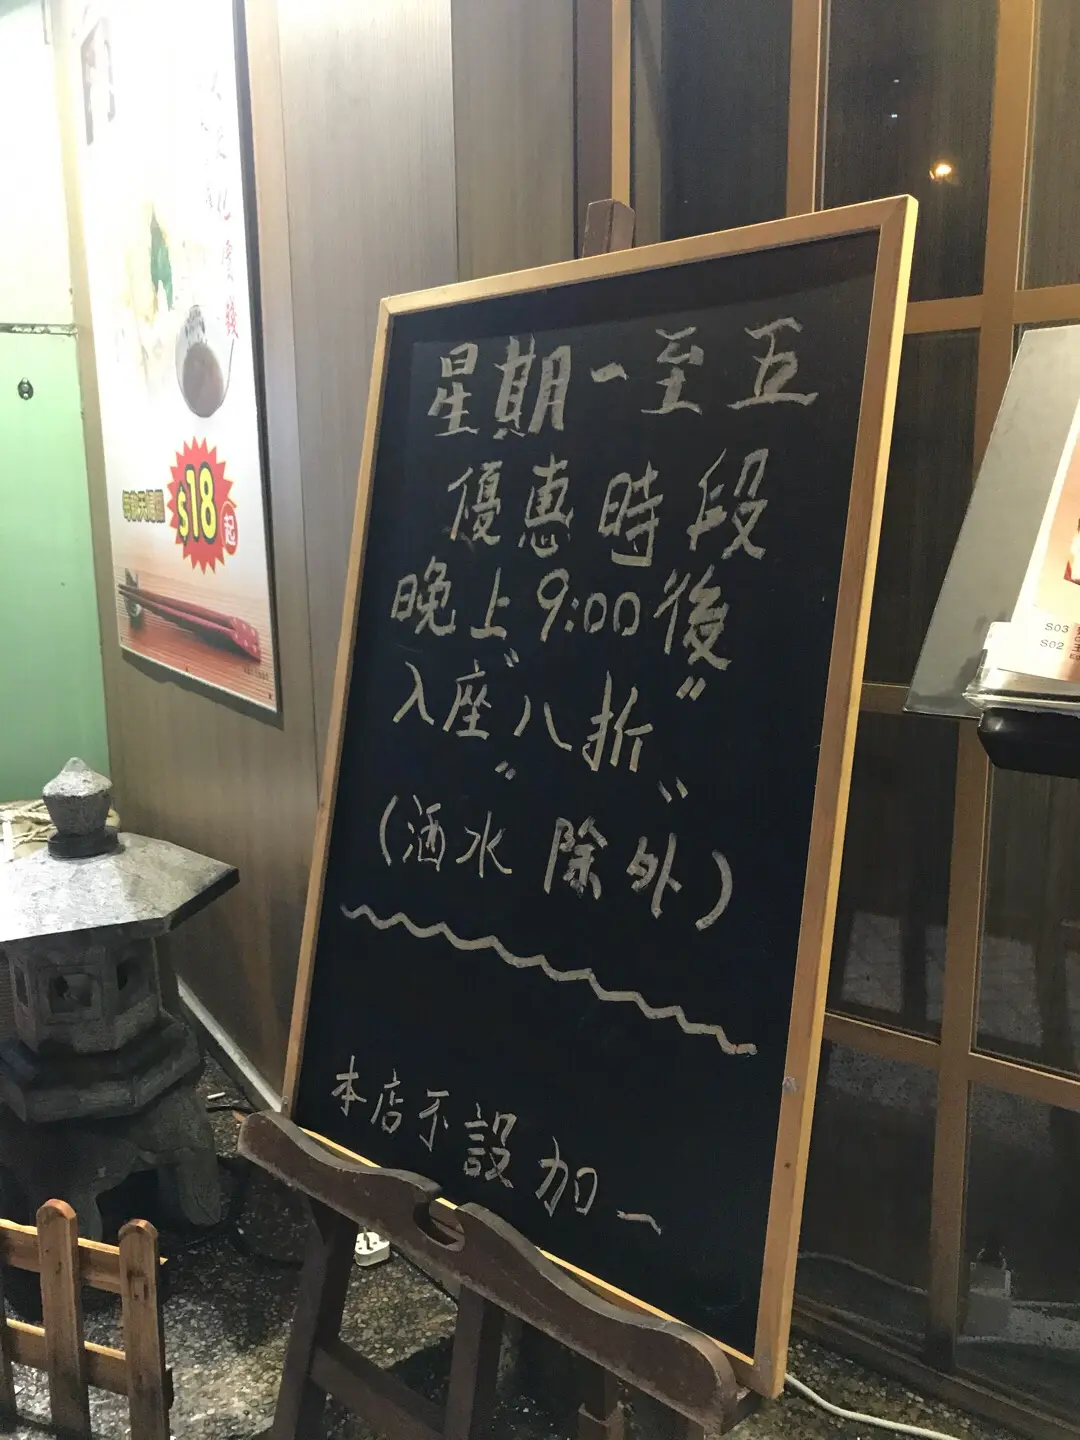 星期一至五
優惠時段
晚上9:00後
入座"八折"
(酒水除外)
本店不設加一
$18
起
S03
S02